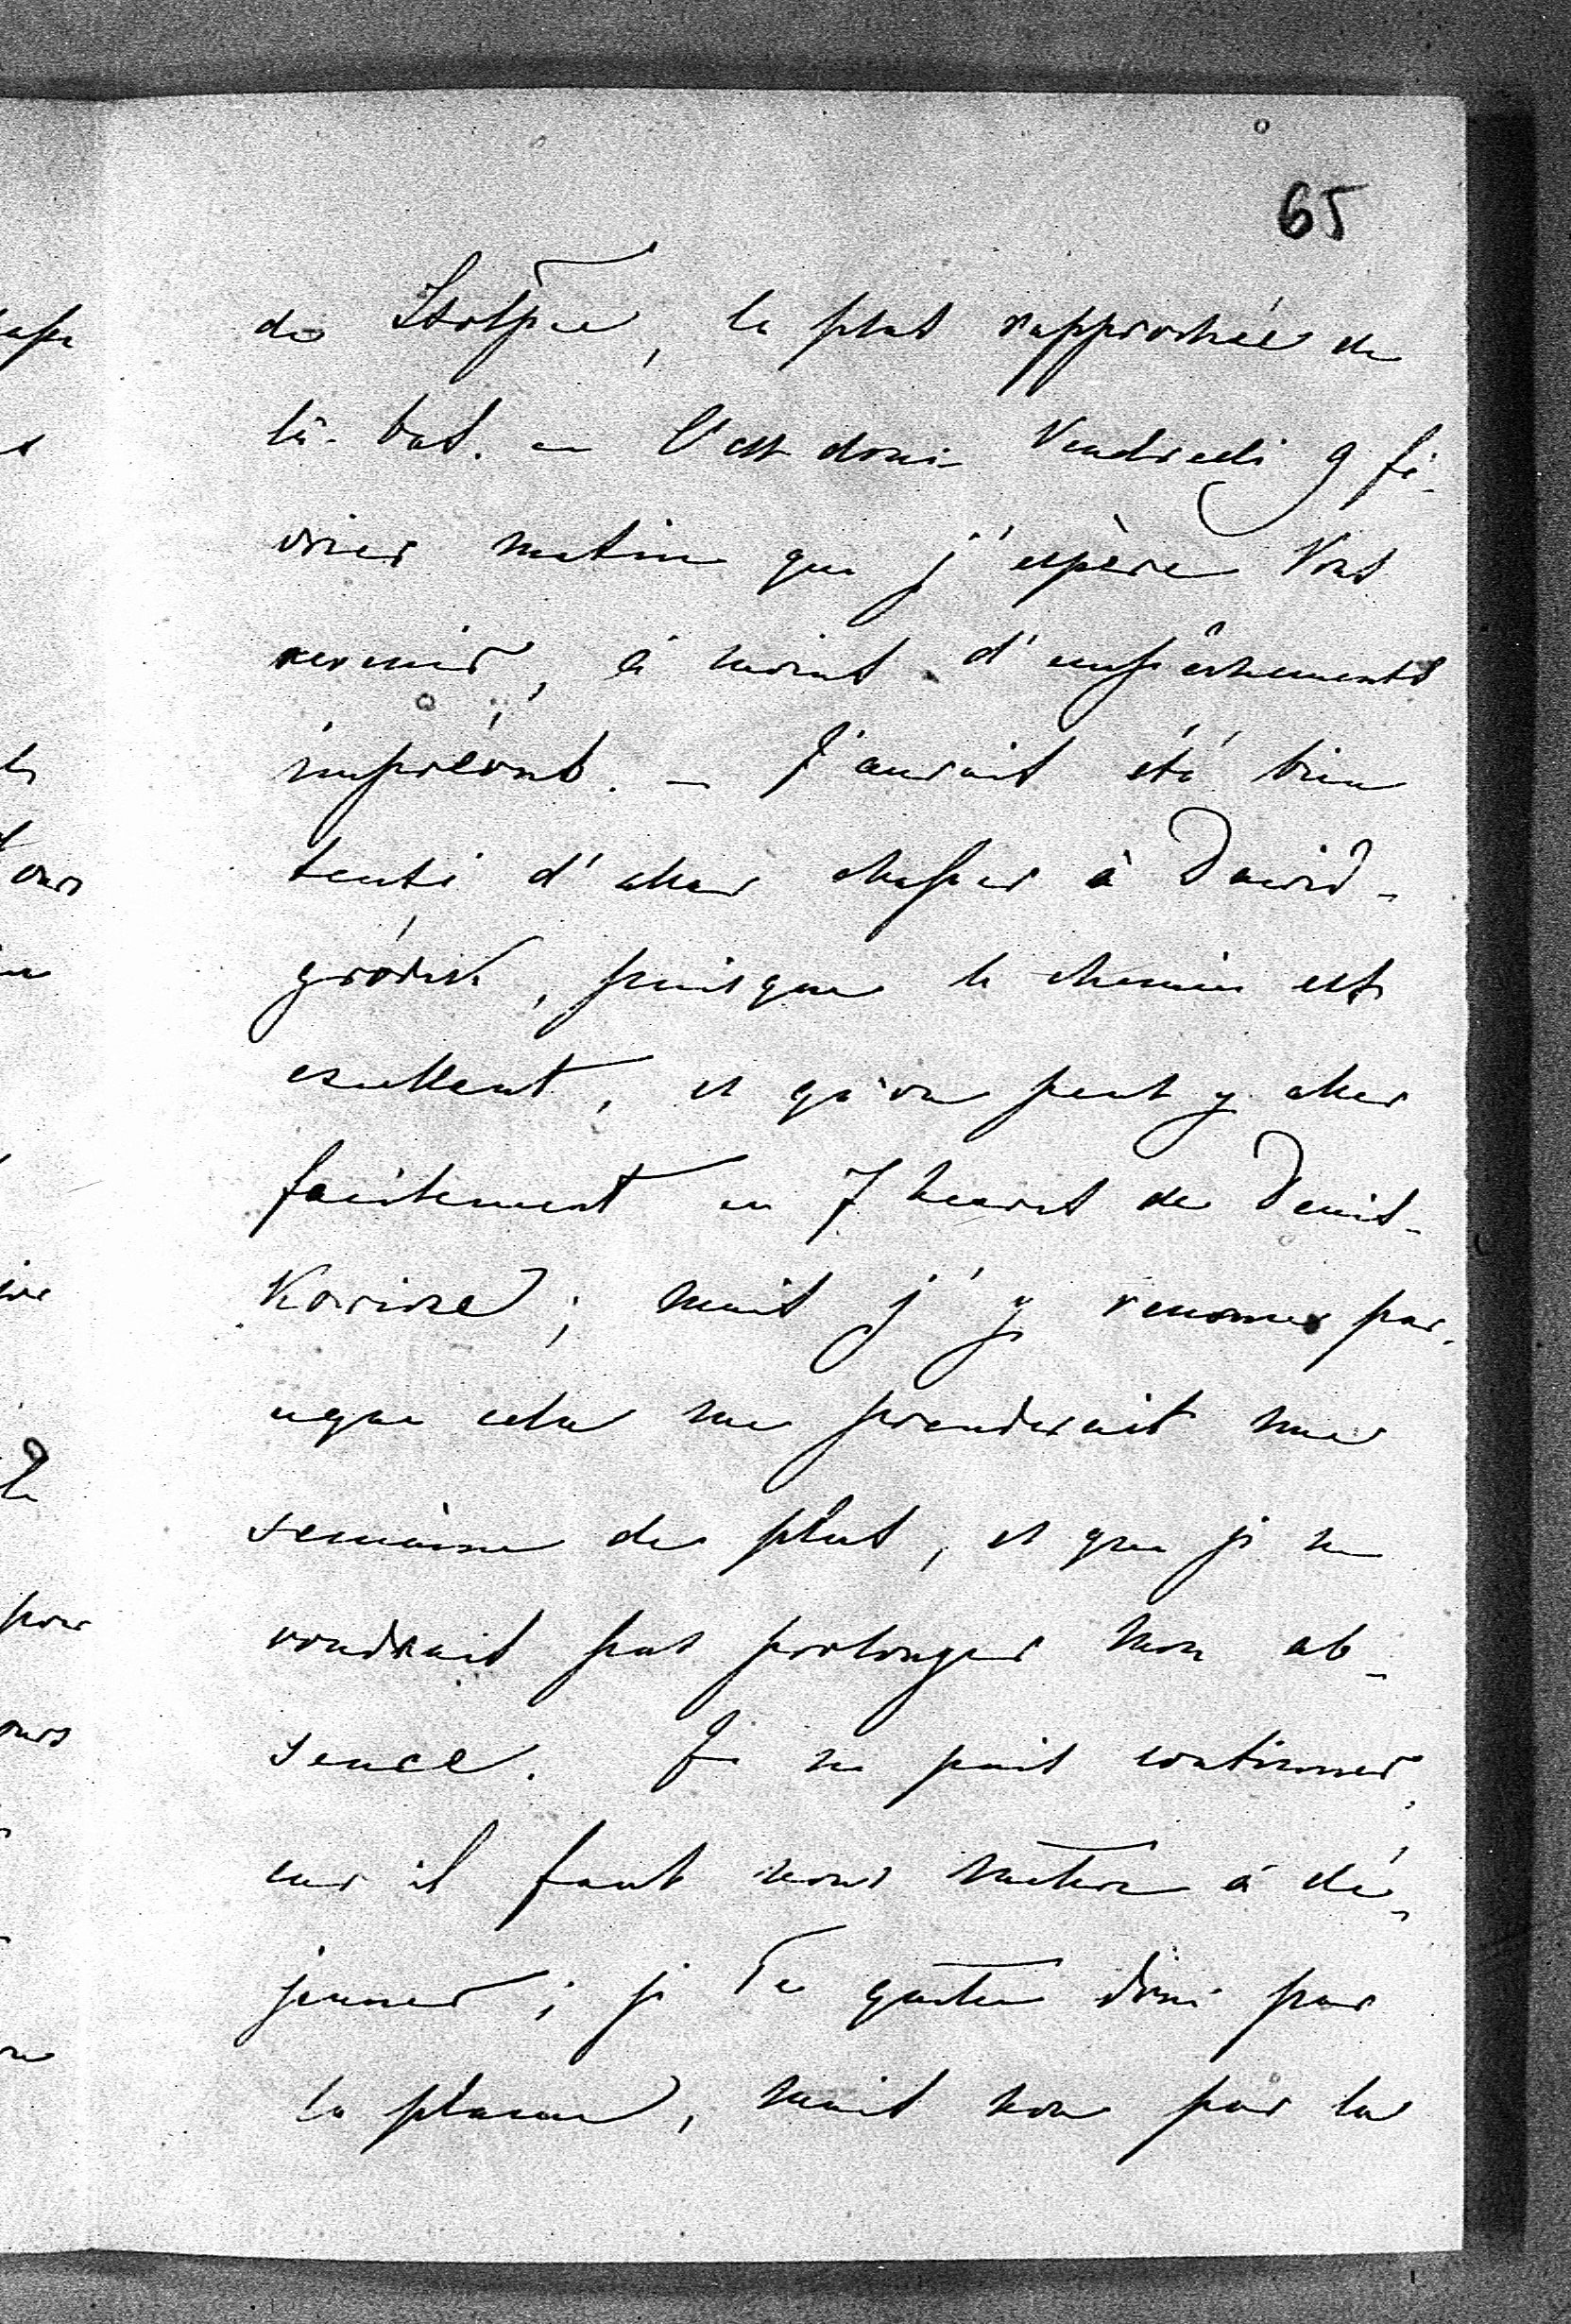 65
de Stolpce, la plus rapprochée de
là-bas. — C'est donc Vendredi 9 fé-
vrier matin que j'espère Vous
revenir, à moins d'empêchements
imprévus. — J'aurais été bien
tenté d'aller chasser à Dawid-
gródek, puisque le chemin est
exellent, et qu'on peut y aller
facilement en 7 heures de Denis-
Kovicze; mais j'y renonce par-
ceque cela me prenderait une
semaine de plus, et que je ne
voudrais pas prolonger mon ab-
sence. Je ne puis continuer,
car il faut nous mettre à dé-
jeuner; je Te quitte donc par
la plume, mais non par la